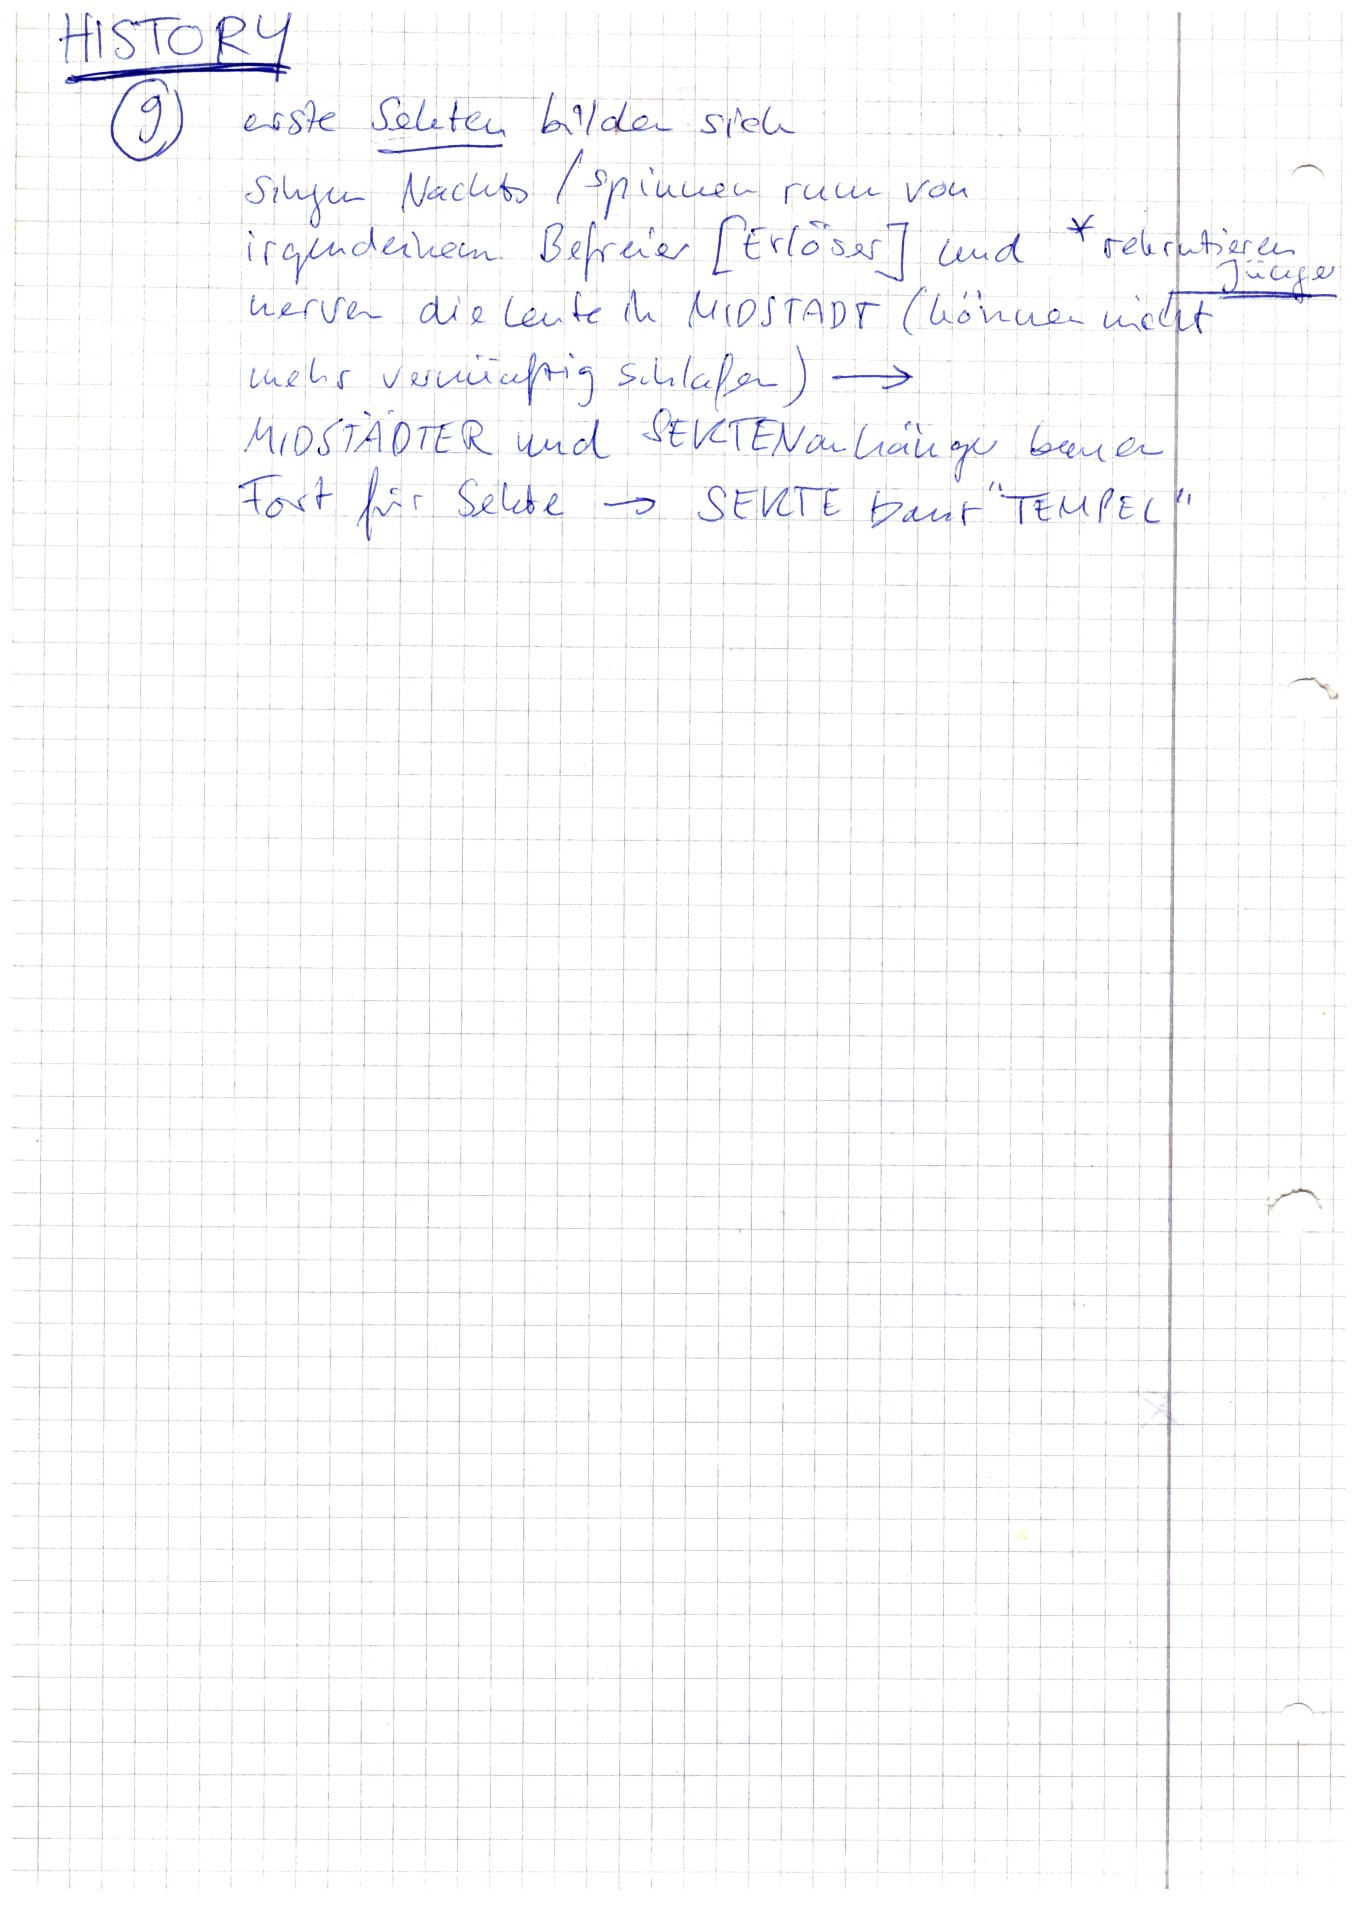 HISTORY
9) erste Sekten bilden sich
singen Nachts / spinnen rum von
irgendeinem Befreier [Erlöser] und * rekrutieren
Jünger
nerven die Leute in MIDSTADT (können nicht
mehr vernünftig schlafen) →
MIDSTÄDTER und SEKTENanhänger bauen
Fort für Sekte → SEKTE baut "TEMPEL"